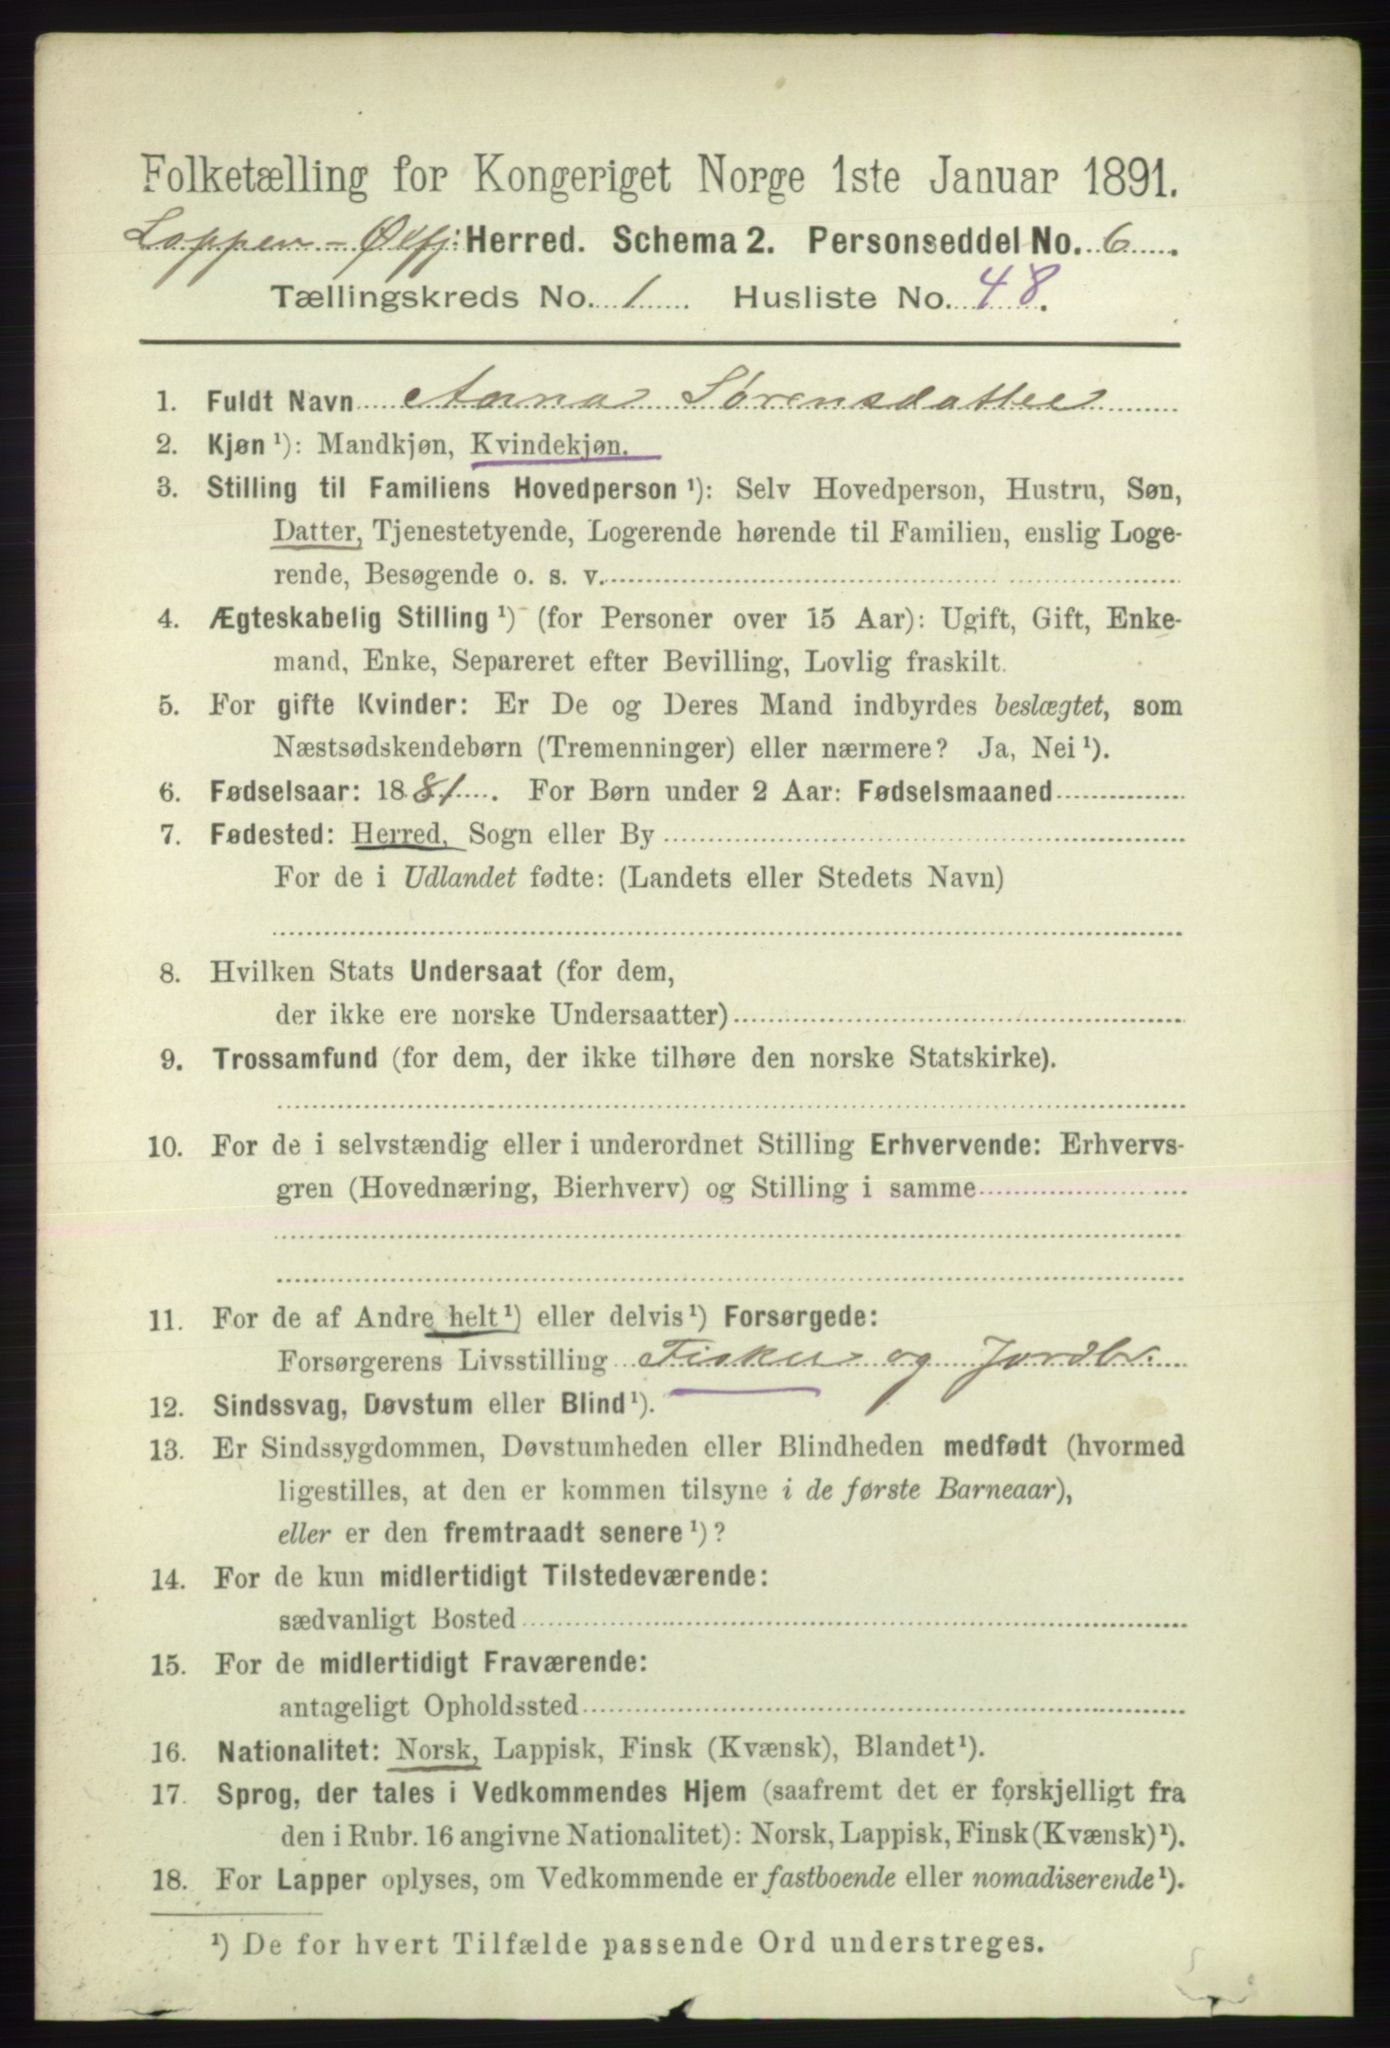 Folketælling for Kongeriget Norge 1ste Januar 1891.
Loppen - Øxfj: Herred. Schema 2. Personseddel No. 6.
Tællingskreds No. 1 Husliste No. 48.
1. Fuldt Navn Anna Sørensdatter
2. Kjøn ¹): Mandkjøn, Kvindekjøn.
3. Stilling til Familiens Hovedperson ¹): Selv Hovedperson, Hustru, Søn,
Datter, Tjenestetyende, Logerende hørende til Familien, enslig Loge-
rende, Besøgende o. s. v.
4. Ægteskabelig Stilling ¹) (for Personer over 15 Aar): Ugift, Gift, Enke-
mand, Enke, Separeret efter Bevilling, Lovlig fraskilt.
5. For gifte Kvinder: Er De og Deres Mand indbyrdes beslægtet, som
Næstsødskendebørn (Tremenninger) eller nærmere? Ja, Nei ¹).
6. Fødselsaar: 1881. For Børn under 2 Aar: Fødselsmaaned
7. Fødested: Herred, Sogn eller By
For de i Udlandet fødte: (Landets eller Stedets Navn)
8. Hvilken Stats Undersaat (for dem,
der ikke ere norske Undersaatter)
9. Trossamfund (for dem, der ikke tilhøre den norske Statskirke).
10. For de i selvstændig eller i underordnet Stilling Erhvervende: Erhvervs-
gren (Hovednæring, Bierhverv) og Stilling i samme
11. For de af Andre helt ¹) eller delvis ¹) Forsørgede:
Forsørgerens Livsstilling Fisker og Jordbr.
12. Sindssvag, Døvstum eller Blind ¹).
13. Er Sindssygdommen, Døvstumheden eller Blindheden medfødt (hvormed
ligestilles, at den er kommen tilsyne i de første Barneaar),
eller er den fremtraadt senere ¹)?
14. For de kun midlertidigt Tilstedeværende:
sædvanligt Bosted
15. For de midlertidigt Fraværende:
antageligt Opholdssted
16. Nationalitet: Norsk, Lappisk, Finsk (Kvænsk), Blandet ¹).
17. Sprog, der tales i Vedkommendes Hjem (saafremt det er forskjelligt fra
den i Rubr. 16 angivne Nationalitet): Norsk, Lappisk, Finsk (Kvænsk) ¹).
18. For Lapper oplyses, om Vedkommende er fastboende eller nomadiserende ¹).
¹) De for hvert Tilfælde passende Ord understreges.